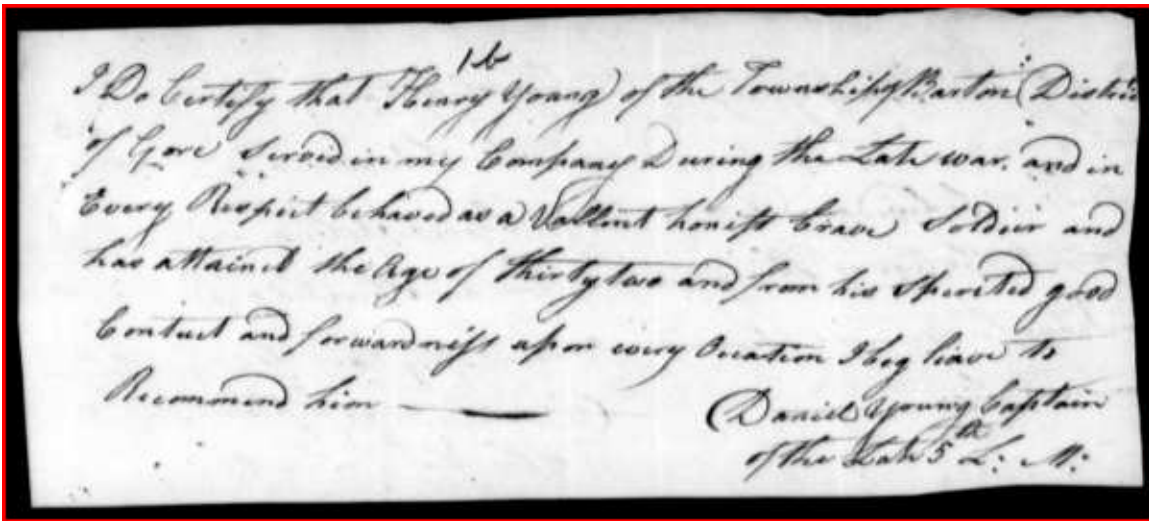 16
I Do Certify that Henry Young of the Township of Barton Distric
of Gore Served in my Company During the Late war. and in
Every Respect behaved as a Vallent honest brave Soldier and
has attained the Age of thirty two and from his Spereted good
Contuct and forwardness upon every Ocation I beg leave to
Recommend him
Daniel Young Captain
of the Late 5th L: M: